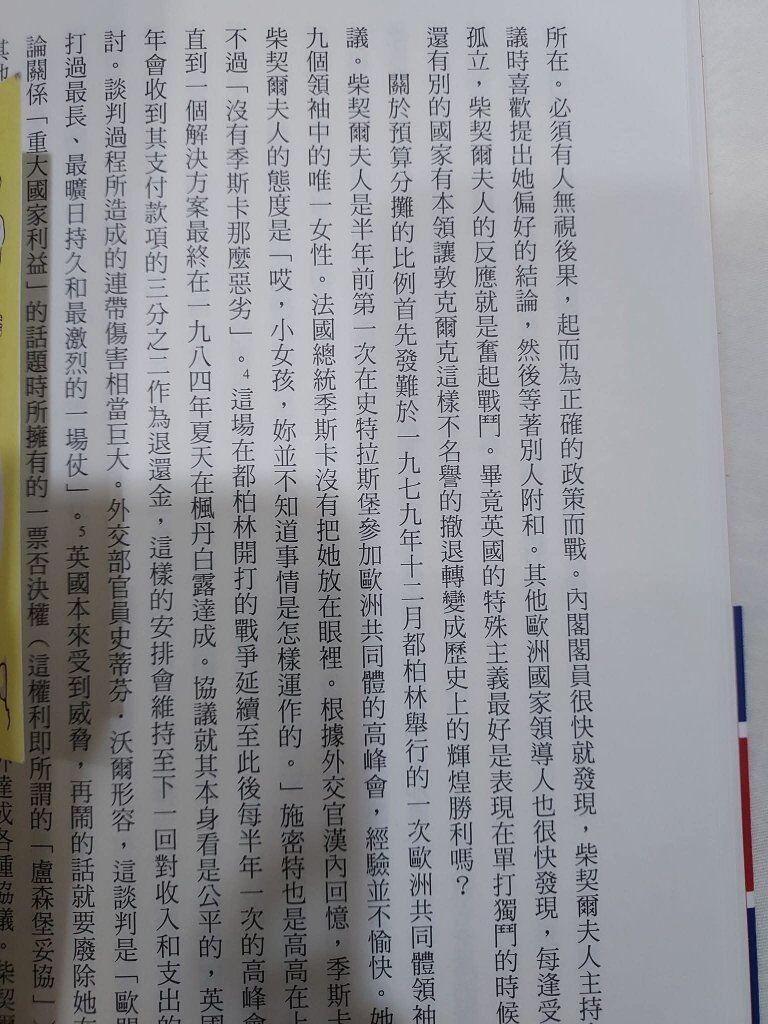 所在。必須有人無視後果，起而為正確的政策而戰。內閣閣員很快就發現，柴契爾夫人主持
議時喜歡提出她偏好的結論，然後等著別人附和。其他歐洲國家領導人也很快發現，每逢受
孤立，柴契爾夫人的反應就是奮起戰鬥。畢竟英國的特殊主義最好是表現在單打獨鬥的時候
還有別的國家有本領讓敦克爾克這樣不名譽的撤退轉變成歷史上的輝煌勝利嗎？
關於預算分攤的比例首先發難於一九七九年十二月都柏林舉行的一次歐洲共同體領袖
議。柴契爾夫人是半年前第一次在史特拉斯堡參加歐洲共同體的高峰會，經驗並不愉快。她
九個領袖中的唯一女性。法國總統季斯卡沒有把她放在眼裡。根據外交官漢內回憶，季斯卡
柴契爾夫人的態度是「哎，小女孩，妳並不知道事情是怎樣運作的。」施密特也是高高在上
不過「沒有季斯卡那麼惡劣」。4這場在都柏林開打的戰爭延續至此後每半年一次的高峰會
直到一個解決方案最終在一九八四年夏天在楓丹白露達成。協議就其本身看是公平的，英國
年會收到其支付款項的三分之二作為退還金，這樣的安排會維持至下一回對收入和支出的
討。談判過程所造成的連帶傷害相當巨大。外交部官員史蒂芬．沃爾形容，這談判是「歐盟
打過最長、最曠日持久和最激烈的一場仗」。5英國本來受到威脅，再鬧的話就要廢除她在
論關係「重大國家利益」的話題時所擁有的一票否決權（這權利即所謂的「盧森堡妥協」
達成各種協議。柴契爾